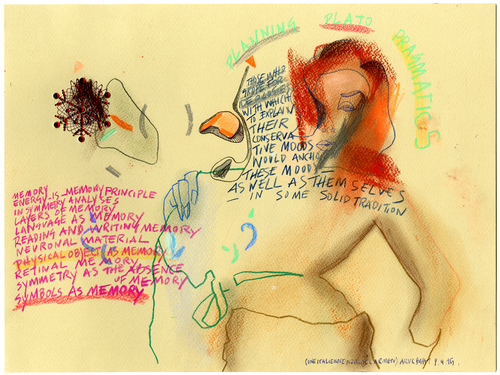 PLANNING PLATO DRAMMATICS
THOSE WHO
WITH WHICH
TO EXPLAIN
THEIR
CONSERVA
TIVE MOODS
WOULD ANCHOR
THESE MOODS
AS WELL AS THEMSELVES
IN SOME SOLID TRADITION
MEMORY
ENERGY IS MEMORY PRINCIPLE
IN SYMMETRY ANALYSES
LAYERS OF MEMORY
LANGUAGE AS MEMORY
READING AND WRITING MEMORY
NEURONAL MATERIAL
PHYSICAL OBJECT AS MEMORY
RETINAL MEMORY
SYMMETRY AS THE ABSENCE
OF MEMORY
SYMBOLS AS MEMORY